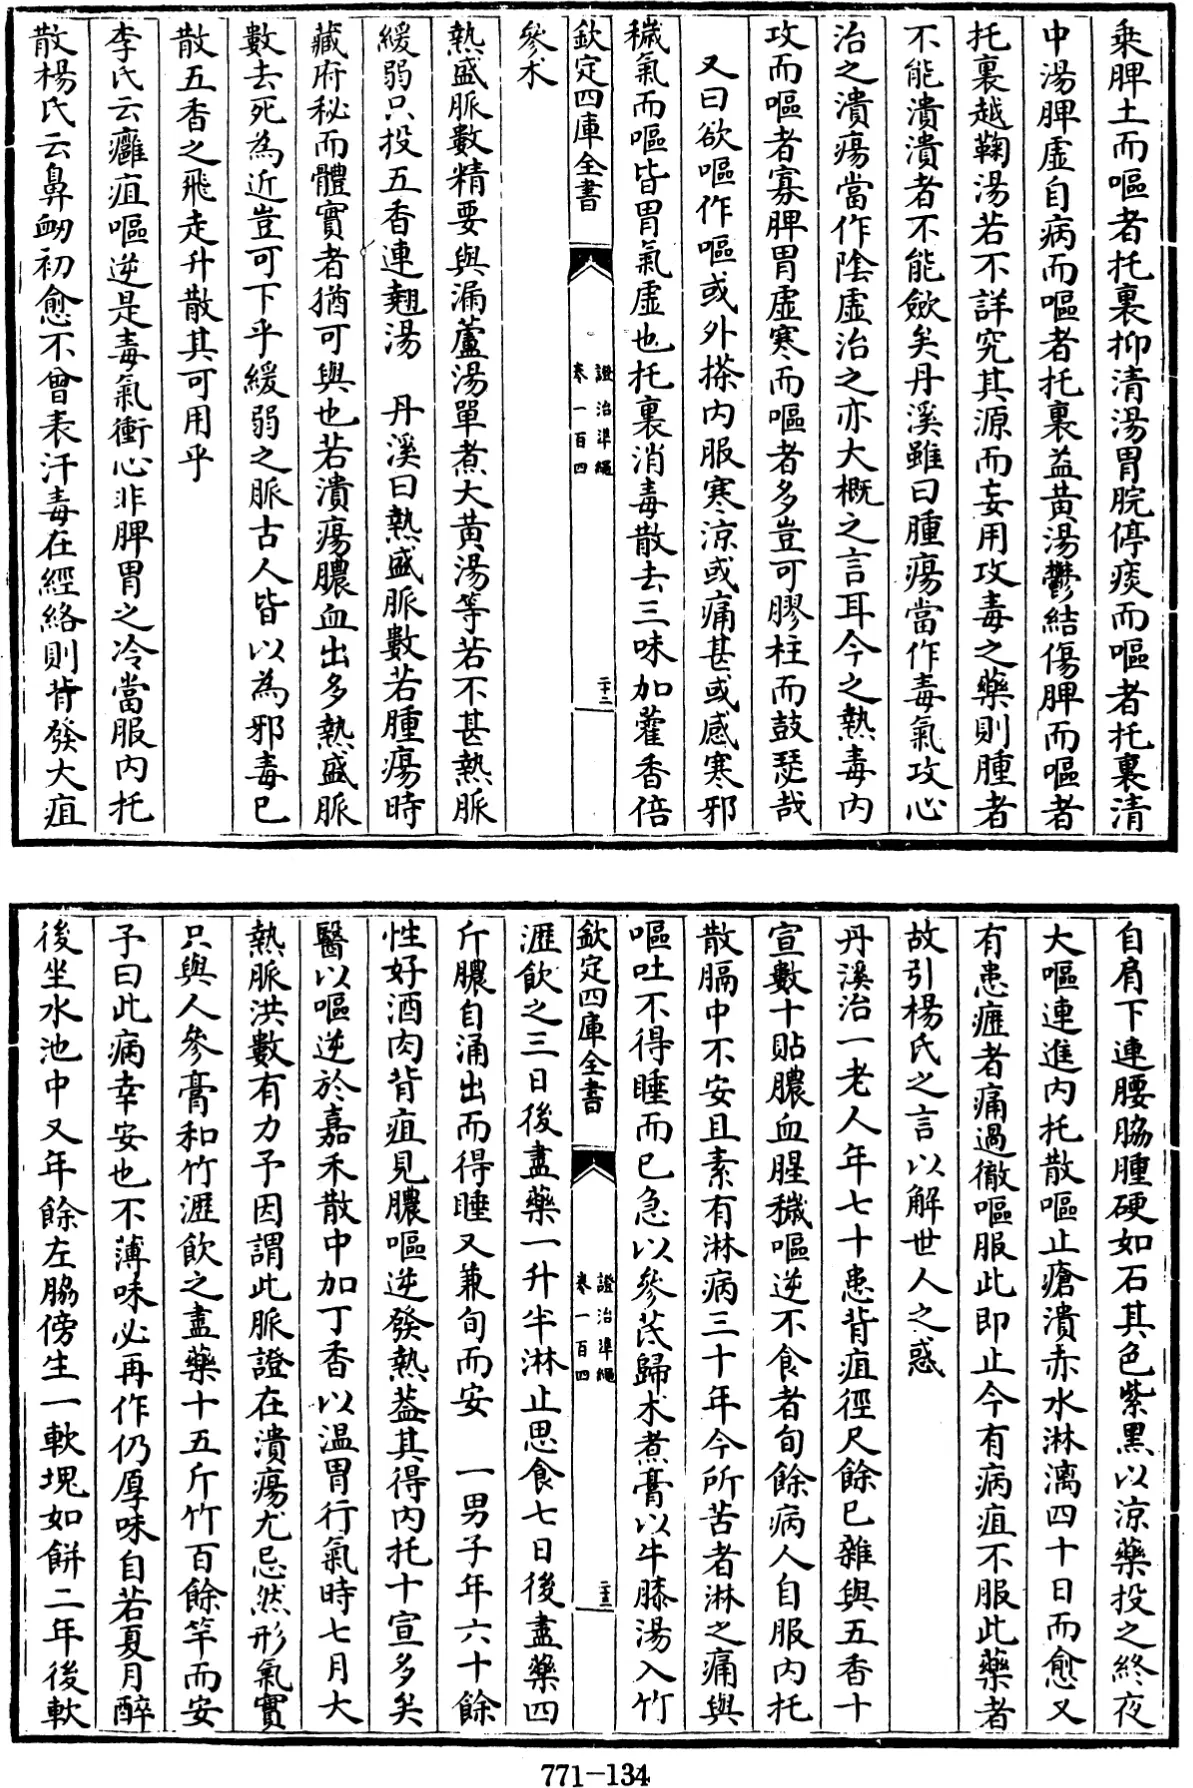 乘脾土而嘔者托裏抑清湯胃脘停痰而嘔者托裏清
中湯脾虛自病而嘔者托裏益黄湯鬱結傷脾而嘔者
托裏越鞠湯若不詳究其源而妄用攻毒之藥則腫者
不能潰潰者不能斂矣丹溪雖曰腫瘍當作毒氣攻心
治之潰瘍當作陰虛治之亦大概之言耳今之熱毒内
攻而嘔者寡脾胃虛寒而嘔者多豈可膠柱而鼓瑟哉
又曰欲嘔作嘔或外搽内服寒涼或痛甚或感寒邪
穢氣而嘔皆胃氣虛也托裏消毒散去三味加藿香倍
欽定四庫全書
證治準繩
卷一百四
二十二
參术
熱盛脈數精要與漏蘆湯單煮大黄湯等若不甚熱脈
緩弱只投五香連翹湯　丹溪曰熱盛脈數若腫瘍時
藏府秘而體實者猶可與也若潰瘍膿血出多熱盛脈
數去死為近豈可下乎緩弱之脈古人皆以為邪毒已
散五香之飛走升散其可用乎
李氏云癰疽嘔逆是毒氣衝心非脾胃之冷當服内托
散楊氏云鼻衂初愈不曾表汗毒在經絡則背發大疽
自肩下連腰脇腫硬如石其色紫黒以涼藥投之終夜
大嘔連進内托散嘔止瘡潰赤水淋漓四十日而愈又
有患癰者痛過徹嘔服此即止今有病疽不服此藥者
故引楊氏之言以解世人之惑
丹溪治一老人年七十患背疽徑尺餘已雜與五香十
宣數十貼膿血腥穢嘔逆不食者旬餘病人自服内托
散膈中不安且素有淋病三十年今所苦者淋之痛與
嘔吐不得睡而已急以參芪歸术煮膏以牛膝湯入竹
欽定四庫全書
證治準繩
卷一百四
二十三
瀝飲之三日後盡藥一升半淋止思食七日後盡藥四
斤膿自涌出而得睡又兼旬而安　一男子年六十餘
性好酒肉背疽見膿嘔逆發熱葢其得内托十宣多矣
醫以嘔逆於嘉禾散中加丁香以温胃行氣時七月大
熱脈洪數有力予因謂此脈證在潰瘍尤忌然形氣實
只與人參膏和竹瀝飲之盡藥十五斤竹百餘竿而安
予曰此病幸安也不薄味必再作仍厚味自若夏月醉
後坐水池中又年餘左脇傍生一軟塊如餅二年後軟
771—134